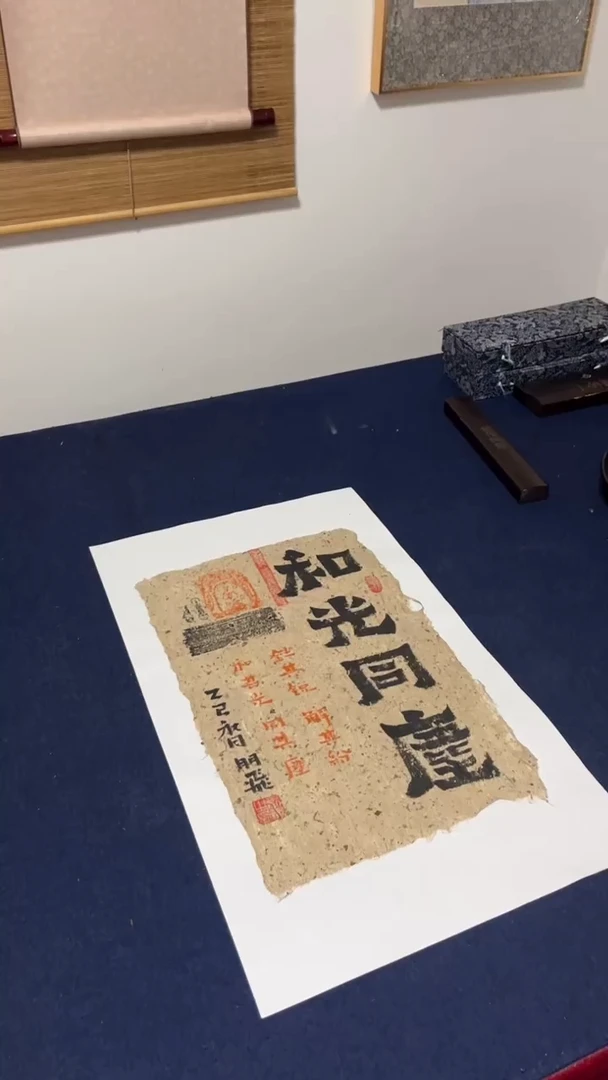 和光同塵
挫其銳 解其紛
和其光 同其塵
乙巳春月 朋飛